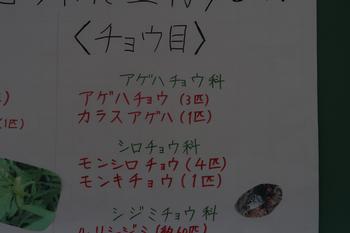 〈チョウ目〉
アゲハチョウ科
アゲハチョウ (3匹)
カラスアゲハ (1匹)
(1匹)
シロチョウ科
モンシロチョウ (4匹)
モンキチョウ (1匹)
シジミチョウ科